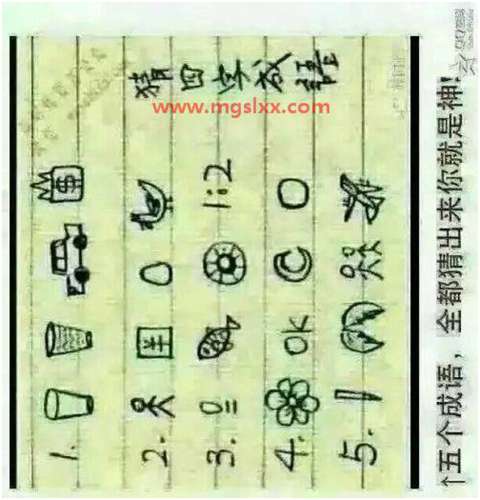 猜四字成语
www.mgslxx.com
1. $
2.
3. 1:2
4. OK
5.
↑五个成语，全都猜出来你就是神!